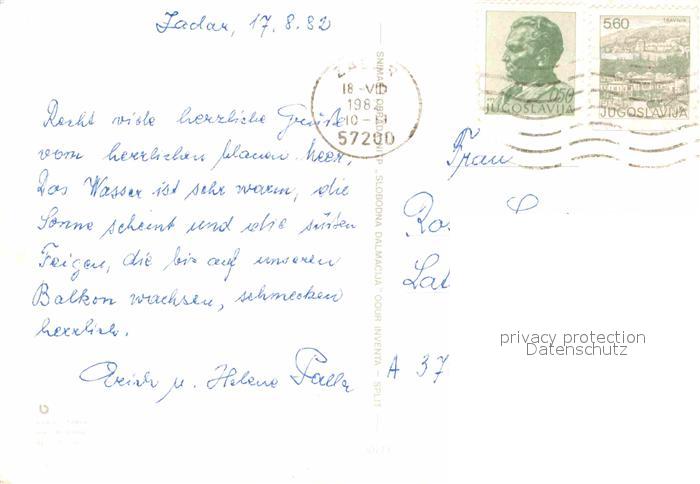 Zadar, 17.8.82
Recht viele herzliche Grüße
vom herrlichen blauen Meer,
Das Wasser ist sehr warm, die
Sonne scheint und die süßen
Feigen, die bis auf unseren
Balkon wachsen, schmecken
herrlich.
Erich u. Helene
ZADAR
18-VIII
198
10-
57200
0.50
JUGOSLAVIJA
5.60
TRAVNIK
JUGOSLAVIJA
„SLOBODNA DALMACIJA" OOUR INVENTA – SPLIT
Frau
Ro
Lat
A 37
privacy protection
Datenschutz